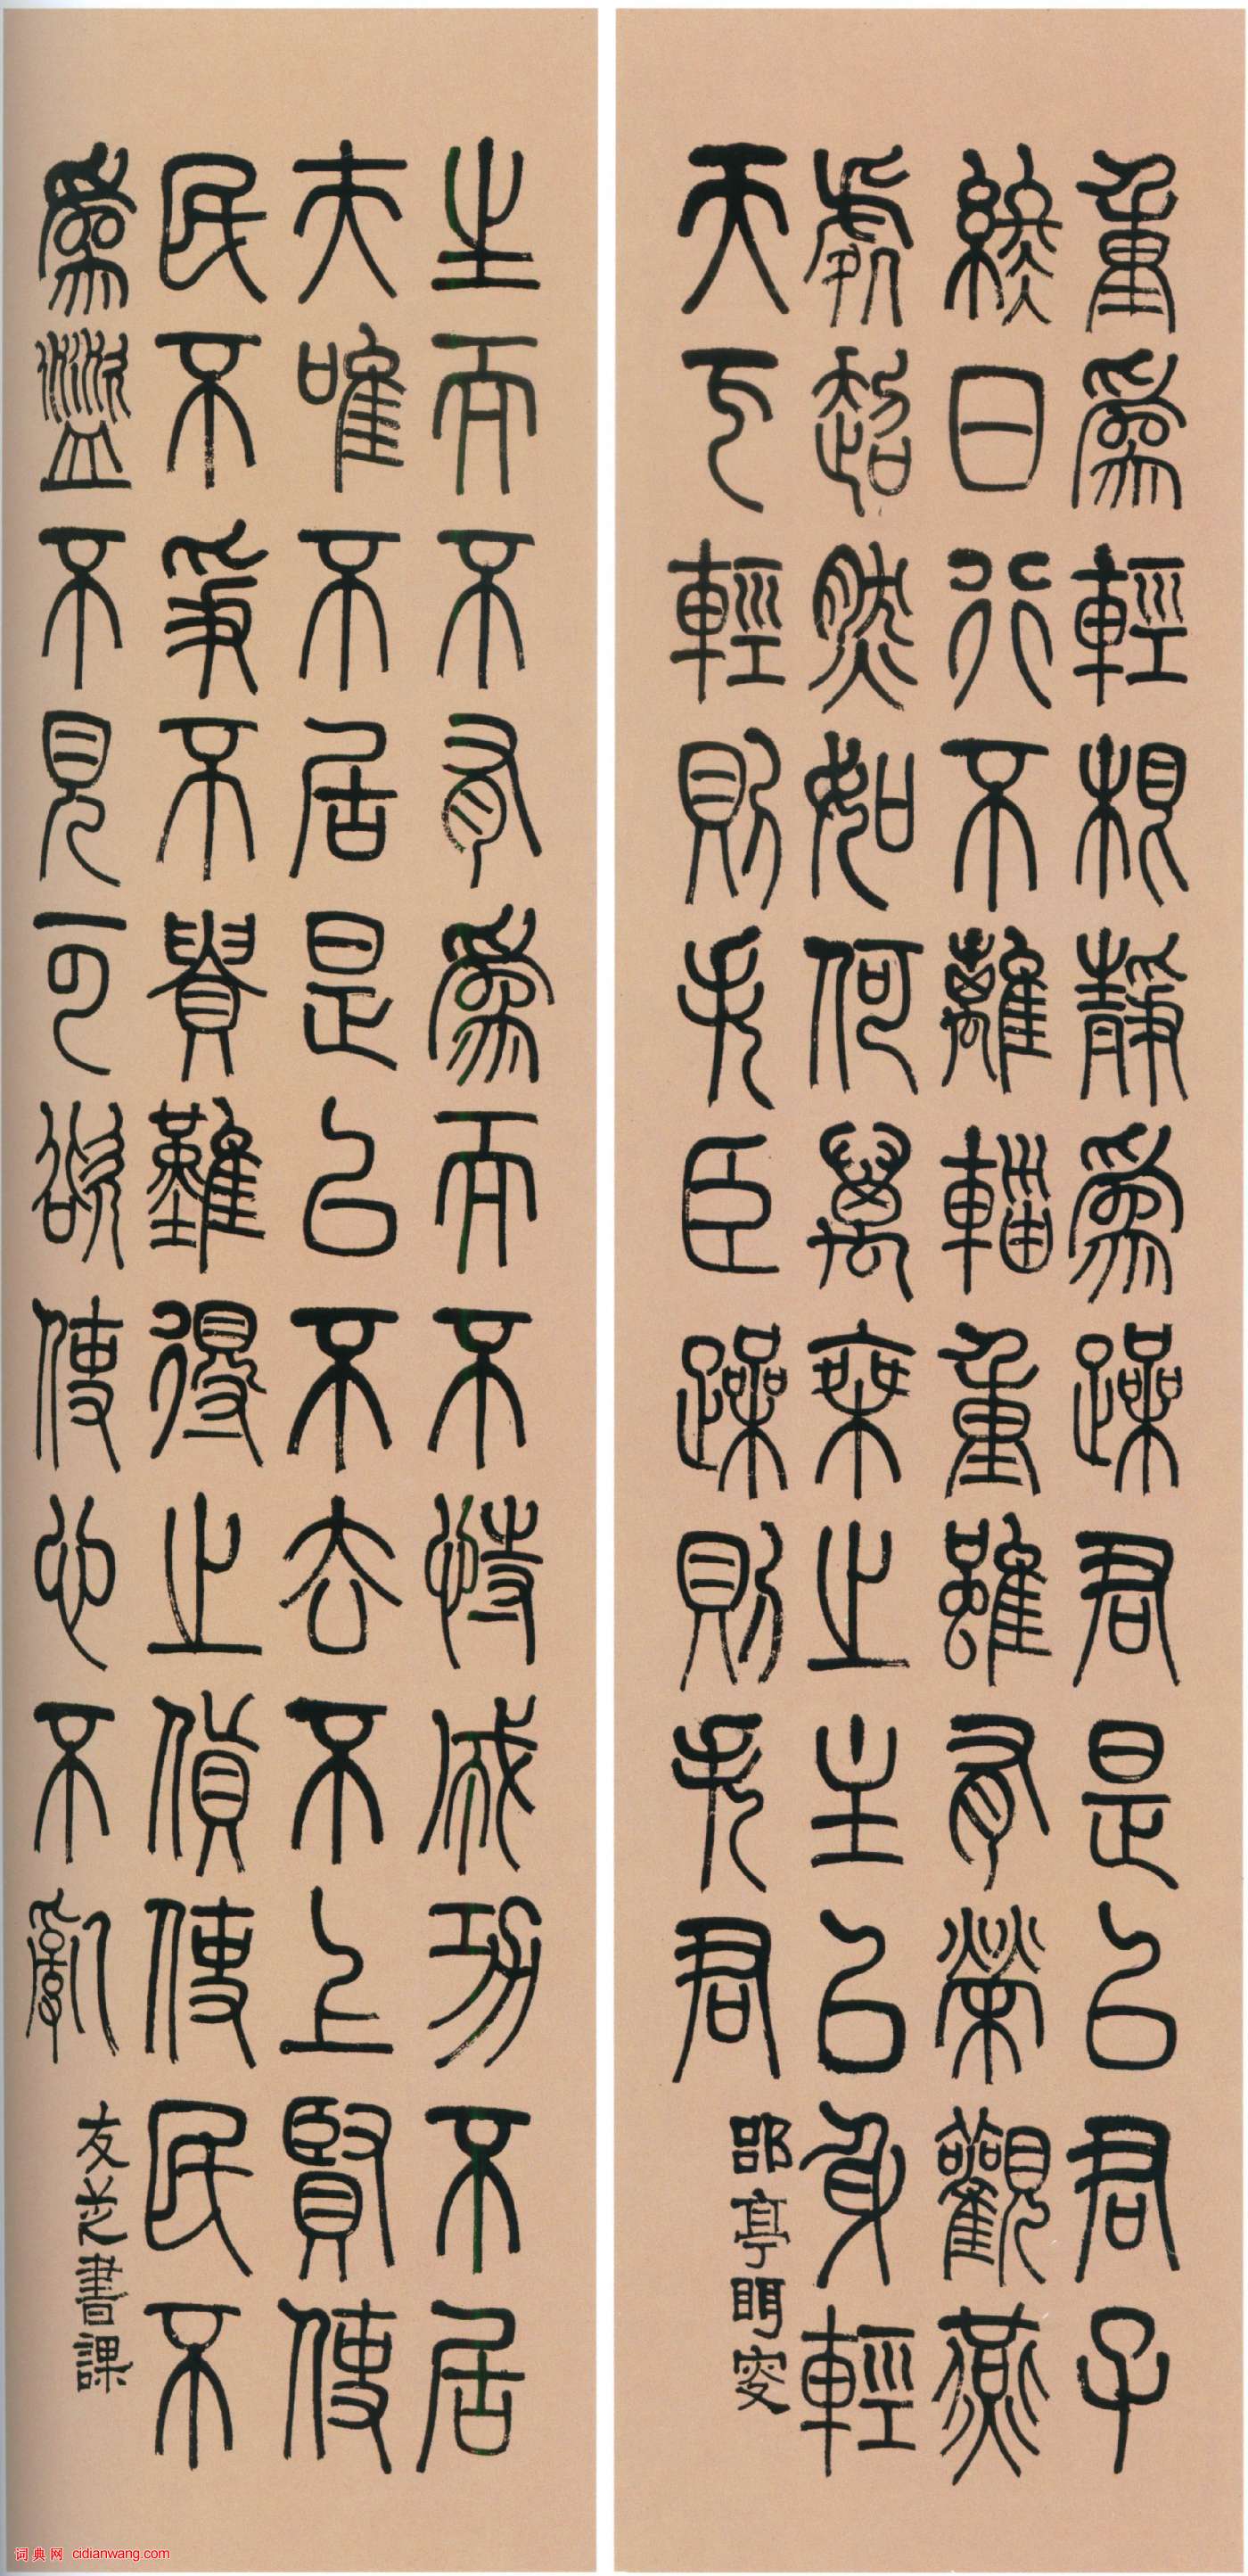 重為輕根靜為躁君是以君子
終日行不離輜重雖有榮觀燕
處超然如何萬乘之主以身輕
天下輕則失臣躁則失君
郘亭眲叟
生而不有為而不恃成功不居
夫唯不居是以不去不上賢使
民不爭不貴難得之貨使民不
為盜不見可欲使心不亂
友芝書課
词典网 cidianwang.com